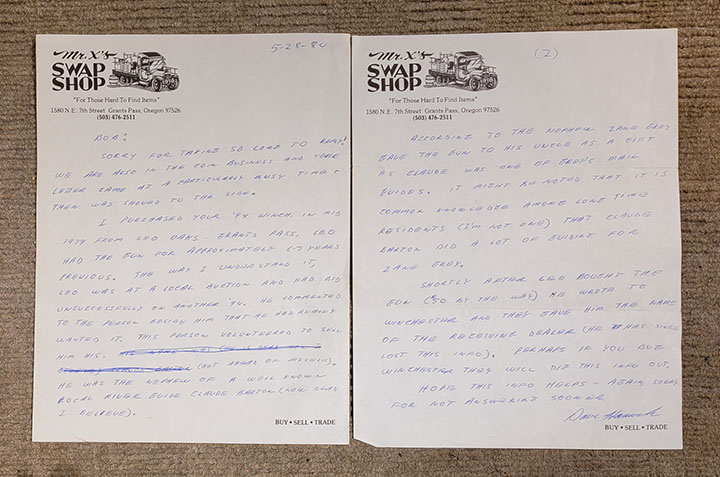 Mr. X's
SWAP
SHOP
"For Those Hard To Find Items"
1580 N.E. 7th Street Grants Pass, Oregon 97526
(503) 476-2511
5-28-80
BOB:
SORRY FOR TAKING SO LONG TO REPLY!
WE ARE ALSO IN THE COIN BUSINESS AND YOUR
LETTER CAME AT A PARTICULARLY BUSY TIME &
THEN WAS SHOVED TO THE SIDE.
I PURCHASED YOUR '94 WINCH. IN MID
1979 FROM LEO OAKS - GRANTS PASS. LEO
HAD THE GUN FOR APPROXIMATELY 6-7 YEARS
PREVIOUS. THE WAY I UNDERSTAND IT,
LEO WAS AT A LOCAL AUCTION AND HAD BID
UNSUCCESSFULLY ON ANOTHER '94. HE COMMENTED
TO THE PERSON BESIDE HIM THAT HE HAD REALLY
WANTED IT. THIS PERSON VOLUNTEERED TO SELL
HIM HIS.
(GOT AHEAD OF MYSELF).
HE WAS THE NEPHEW OF A WELL KNOWN
ROGUE RIVER GUIDE CLAUDE BARTON (NOW DEAD
I BELIEVE).
BUY • SELL • TRADE
Mr. X's
SWAP
SHOP
"For Those Hard To Find Items"
1580 N.E. 7th Street Grants Pass, Oregon 97526
(503) 476-2511
(2)
ACCORDING TO THE NEPHEW ZANE GREY
GAVE THE GUN TO HIS UNCLE AS A GIFT
AS CLAUDE WAS ONE OF GREY'S MAIN
GUIDES. IT MIGHT BE NOTED THAT IT IS
COMMON KNOWLEDGE AMONG LONG TIME
RESIDENTS (I'M NOT ONE) THAT CLAUDE
BARTON DID A LOT OF GUIDING FOR
ZANE GREY.
SHORTLY AFTER LEO BOUGHT THE
GUN ( BY THE WAY) HE WROTE TO
WINCHESTER AND THEY GAVE HIM THE NAME
OF THE RECEIVING DEALER (HE HAS SINCE
LOST THIS INFO). PERHAPS IF YOU
WINCHESTER THEY WILL DIG THIS INFO OUT.
HOPE THIS INFO HELPS - AGAIN SORRY
FOR NOT ANSWERING SOONER
Dave
BUY • SELL • TRADE